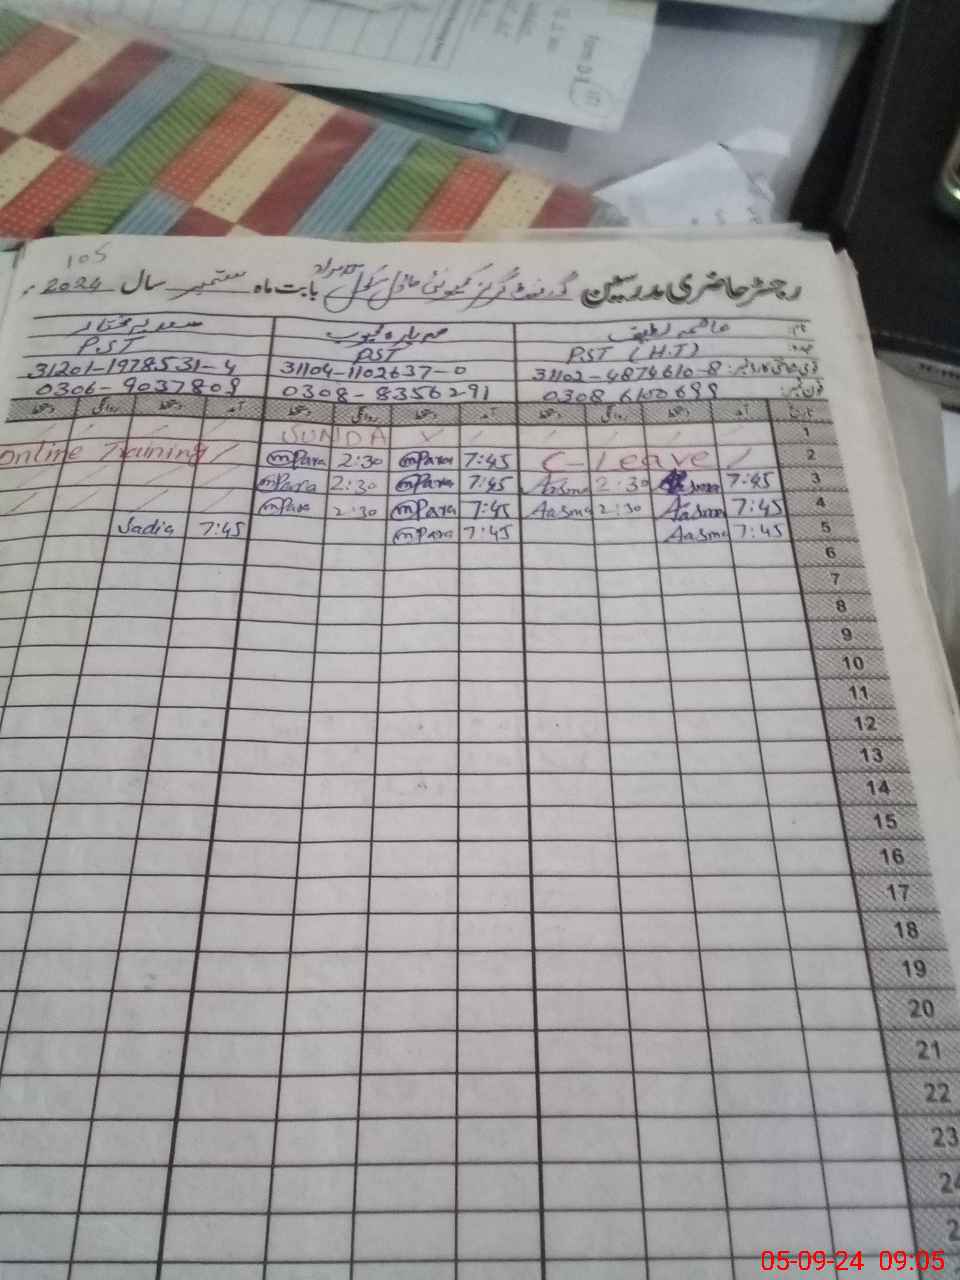 105
رجسٹر حاضری مدرسین گورنمنٹ گرلز کمیونٹی ماڈل سکول بابت ماہ ستمبر سال 2024ء
نام: عاصمہ لطیف سعدیہ مختار
عہدہ: PST (H.T) PST PST
قومی شناختی کارڈ نمبر: 31102-4874610-8 31104-1102637-0 31201-1978531-4
فون نمبر: 0308 6100699 0308-8356291 0306-9037809
تاریخ آمد دستخط روانگی دستخط آمد دستخط روانگی دستخط آمد دستخط روانگی دستخط
1 SUNDAY
2 C-Leave 7:45 mPara 2:30 mPara Online Training
3 7:45 Aasma 2:30 Aasma 7:45 mPara 2:30 mPara
4 7:45 Aasma 2:30 Aasma 7:45 mPara 2:30 mPara
5 7:45 Aasma 7:45 mPara 7:45 Sadia
6
7
8
9
10
11
12
13
14
15
16
17
18
19
20
21
22
23
24
05-09-24 09:05